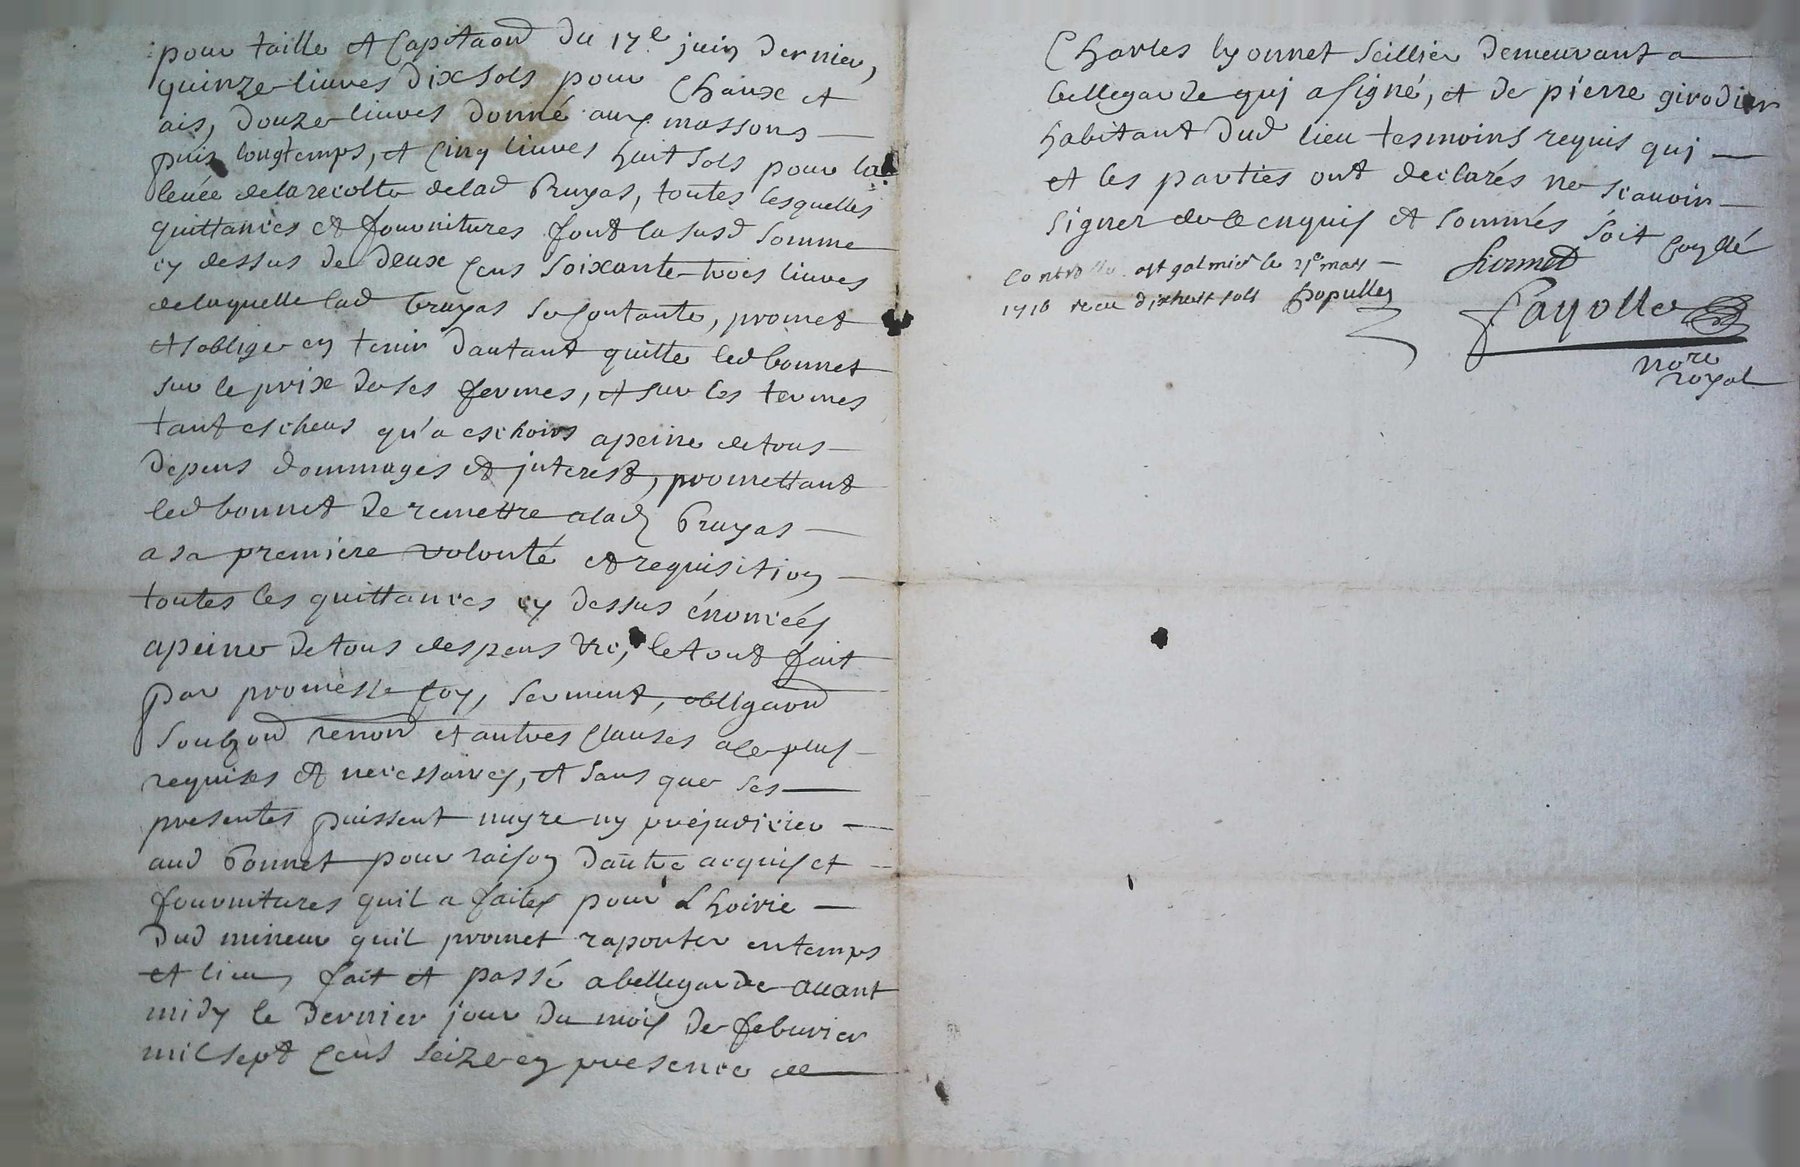 pour taille et Capitaon du 17e juin dernier,
quinze livres dix sols pour Chaux et
ais, douze livres donné aux massons
puis longtemps, et Cinq livres huit sols pour la
levée de la recolte de lad Bruyas, toutes lesquelles
quittances et fournitures font la susd somme
cy dessus de deux Cens soixante trois livres
de laquelle lad bruyas se Contante, promet
et soblige en tenir dautant quitte led bonnet
sur le prix de ses fermes, et sur les termes
tant escheus qu'a eschoirs a peine de tous
depens dommages et jnterest, promettant
led bonnet de remettre a lad Bruyas
a sa premiere volonté et requisition
toutes les quittances cy dessus énoncées
a peine de tous despens &c, le tout fait
par promesse foy, serment, obligaon
soubzon renon et autres Clauses a ce plus
requises et necessaires, et sans que ses
presentes puissent nuyre ny prejudicier
aud Bonnet pour raison dautre acquis et
fournitures quil a faites pour Lhoirie
dud mineur quil promet raporter en temps
et lieu, fait et passé a bellegarde avant
midy le dernier jour du mois de feburier
mil sept Cens seize en presence de
Charles lyonnet seillier demeurant a
bellegarde quj a signé, et de pierre girodier
habitant dud lieu tesmoins requis quj
et les parties ont declarés ne scauoir
signer de ce enquis et sommés soit
Controllé a st galmier le 2e mars
1716 receu dixhuit sols Populles
Fayolle
nore
royal